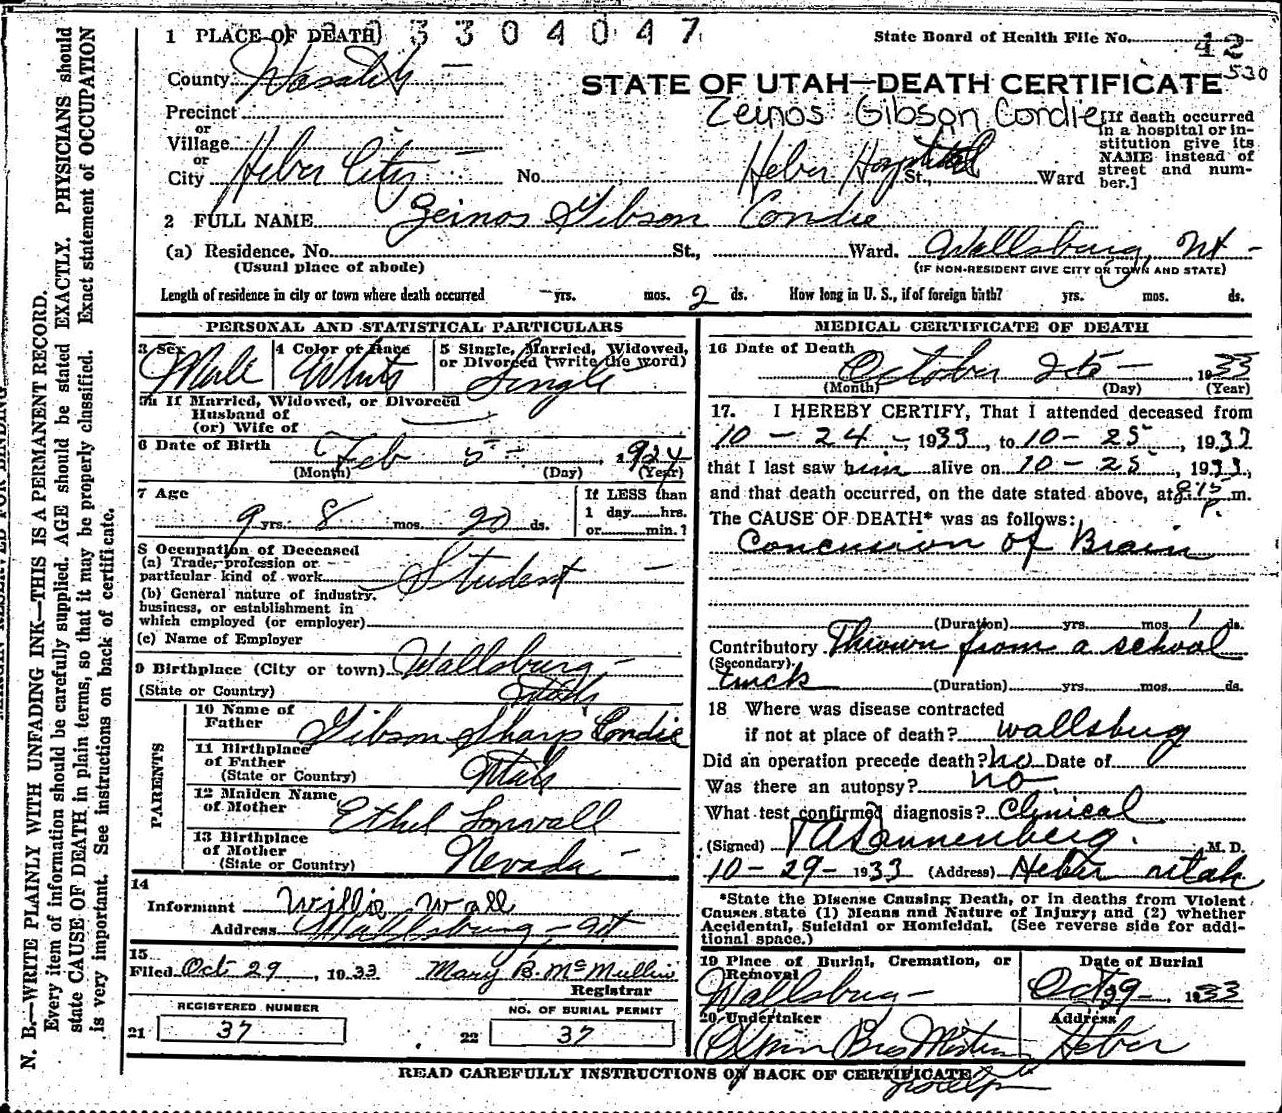 1 PLACE OF DEATH 3 3 0 4 0 4 7
State Board of Health File No. 42
530
County Wasatch
STATE OF UTAH—DEATH CERTIFICATE
Zeinos Gibson Condie
Precinct
or
Village
or
City Heber City No. Heber Hospital St., Ward
[If death occurred in a hospital or in-
stitution give its
NAME instead of
street and num-
ber.]
2 FULL NAME Zeinos Gibson Condie
(a) Residence, No. St., Ward. Wallsburg, Ut
(Usual place of abode) (IF NON-RESIDENT GIVE CITY OR TOWN AND STATE)
Length of residence in city or town where death occurred yrs. mos. 2 ds. How long in U. S., if of foreign birth? yrs. mos. ds.
PERSONAL AND STATISTICAL PARTICULARS
3 Sex Male
4 Color or Race White
5 Single, Married, Widowed,
or Divorced (write the word)
Single
5a If Married, Widowed, or Divorced
Husband of
(or) Wife of
6 Date of Birth Feb 5 1924
(Month) (Day) (Year)
7 Age
9 yrs. 8 mos. 20 ds.
If LESS than
1 day hrs.
or min.?
8 Occupation of Deceased
(a) Trade, profession or
particular kind of work Student
(b) General nature of industry,
business, or establishment in
which employed (or employer)
(c) Name of Employer
9 Birthplace (City or town) Wallsburg
(State or Country) Utah
PARENTS
10 Name of
Father Gibson Sharp Condie
11 Birthplace
of Father
(State or Country) Utah
12 Maiden Name
of Mother Ethel
13 Birthplace
of Mother
(State or Country) Nevada
14
Informant Willis Wall
Address Wallsburg - Ut
15
Filed Oct 29, 1933 Mary B. McMullin
Registrar
REGISTERED NUMBER
21 37
NO. OF BURIAL PERMIT
22 37
MEDICAL CERTIFICATE OF DEATH
16 Date of Death
October 25 1933
(Month) (Day) (Year)
17. I HEREBY CERTIFY, That I attended deceased from
10 - 24 - 1933, to 10 - 25, 1933
that I last saw him alive on 10 - 25, 1933,
and that death occurred, on the date stated above, at 8:15 P. m.
The CAUSE OF DEATH* was as follows:
Concussion of Brain
(Duration) yrs. mos. 1 ds.
Contributory Thrown from a school
(Secondary)
truck (Duration) yrs. mos. ds.
18 Where was disease contracted
if not at place of death? Wallsburg
Did an operation precede death? no Date of
Was there an autopsy? no
What test confirmed diagnosis? Clinical
(Signed) M. D.
10 - 29 - 1933 (Address) Heber Utah
*State the Disease Causing Death, or in deaths from Violent
Causes state (1) Means and Nature of Injury; and (2) whether
Accidental, Suicidal or Homicidal. (See reverse side for addi-
tional space.)
19 Place of Burial, Cremation, or
Removal
Wallsburg
Date of Burial
Oct 29 - 1933
20 Undertaker
Olpin Bros
Address
Heber
READ CAREFULLY INSTRUCTIONS ON BACK OF CERTIFICATE
MARGIN RESERVED FOR BINDING
N. B.—WRITE PLAINLY WITH UNFADING INK—THIS IS A PERMANENT RECORD.
Every item of information should be carefully supplied. AGE should be stated EXACTLY. PHYSICIANS should
state CAUSE OF DEATH in plain terms, so that it may be properly classified. Exact statement of OCCUPATION
is very important. See instructions on back of certificate.